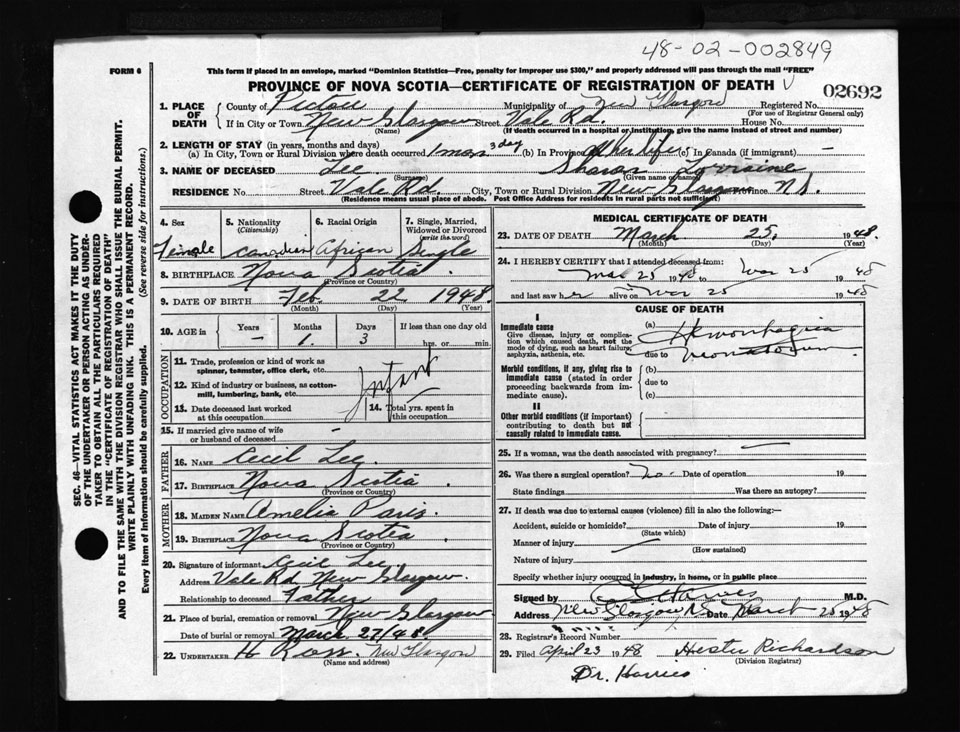 48-02-002849
FORM 6
This form if placed in an envelope, marked "Dominion Statistics—Free, penalty for improper use $300," and properly addressed will pass through the mail "FREE"
PROVINCE OF NOVA SCOTIA—CERTIFICATE OF REGISTRATION OF DEATH
02692
1. PLACE OF DEATH County of Pictou Municipality of New Glasgow Registered No.
(For use of Registrar General only)
If in City or Town New Glasgow Street Vale Rd. House No.
(Name) (If death occurred in a hospital or institution, give the name instead of street and number)
2. LENGTH OF STAY (in years, months and days)
(a) In City, Town or Rural Division where death occurred 1 mos 3 day (b) In Province All her life (c) In Canada (if immigrant) —
3. NAME OF DECEASED Lee Sharon Lorraine
(Surname) (Given name or names)
RESIDENCE No. Street Vale Rd. City, Town or Rural Division New Glasgow Province N.S.
(Residence means usual place of abode. Post Office Address for residents in rural parts not sufficient)
4. Sex Female
5. Nationality (Citizenship) Canadian
6. Racial Origin African
7. Single, Married, Widowed or Divorced (write the word) Single
8. BIRTHPLACE Nova Scotia
(Province or Country)
9. DATE OF BIRTH Feb. 22 1948
(Month) (Day) (Year)
10. AGE in Years — Months 1 Days 3 If less than one day old
hrs. or min.
OCCUPATION
11. Trade, profession or kind of work as spinner, teamster, office clerk, etc.
12. Kind of industry or business, as cotton-mill, lumbering, bank, etc.
Infant
13. Date deceased last worked at this occupation
14. Total yrs. spent in this occupation
15. If married give name of wife or husband of deceased —
FATHER
16. NAME Cecil Lee
17. BIRTHPLACE Nova Scotia
(Province or Country)
MOTHER
18. MAIDEN NAME Amelia Paris
19. BIRTHPLACE Nova Scotia
(Province or Country)
20. Signature of informant Cecil Lee
Address Vale Rd. New Glasgow.
Relationship to deceased Father
21. Place of burial, cremation or removal New Glasgow
Date of burial or removal March 27/48
22. UNDERTAKER H Ross. New Glasgow
(Name and address)
MEDICAL CERTIFICATE OF DEATH
23. DATE OF DEATH March 25, 1948.
(Month) (Day) (Year)
24. I HEREBY CERTIFY that I attended deceased from:
Mar 25 1948 to Mar 25 1948
and last saw her alive on Mar 25 1948
CAUSE OF DEATH
I
Immediate cause
Give disease, injury or complication which caused death, not the mode of dying, such as heart failure, asphyxia, asthenia, etc.
(a) Hemorrhagica
due to neonatorum.
Morbid conditions, if any, giving rise to immediate cause (stated in order proceeding backwards from immediate cause).
(b)
due to
(c)
II
Other morbid conditions (if important) contributing to death but not causally related to immediate cause.
25. If a woman, was the death associated with pregnancy? —
26. Was there a surgical operation? no Date of operation 19
State findings Was there an autopsy?
27. If death was due to external causes (violence) fill in also the following:—
Accident, suicide or homicide? Date of injury 19
(State which)
Manner of injury
(How sustained)
Nature of injury
Specify whether injury occurred in industry, in home, or in public place
Signed by Harries M.D.
Address New Glasgow N.S. Date March 25 1948
28. Registrar's Record Number
29. Filed April 23 1948 Hester Richardson
(Division Registrar)
Dr. Harries
SEC. 46—VITAL STATISTICS ACT MAKES IT THE DUTY
OF THE UNDERTAKER OR PERSON ACTING AS UNDERTAKER TO OBTAIN ALL THE PARTICULARS REQUIRED
IN THE "CERTIFICATE OF REGISTRATION OF DEATH"
AND TO FILE THE SAME WITH THE DIVISION REGISTRAR WHO SHALL ISSUE THE BURIAL PERMIT.
WRITE PLAINLY WITH UNFADING INK. THIS IS A PERMANENT RECORD.
Every item of information should be carefully supplied. (See reverse side for instructions.)